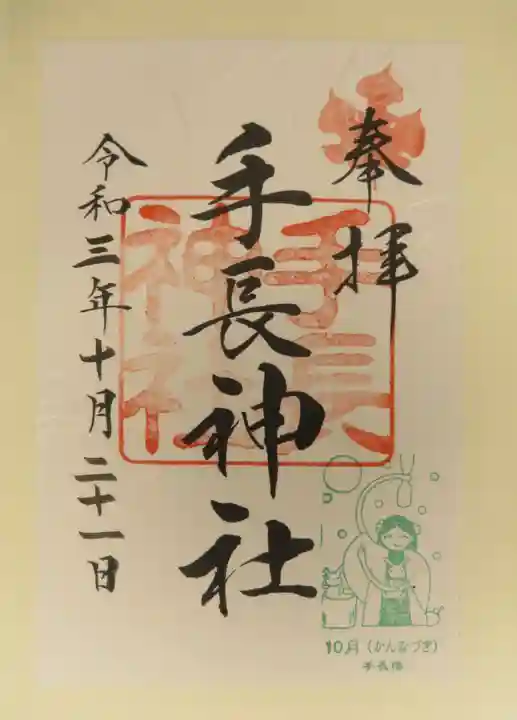 奉拝
手長神社
手長神社
令和三年十月二十一日
10月（かんなづき）